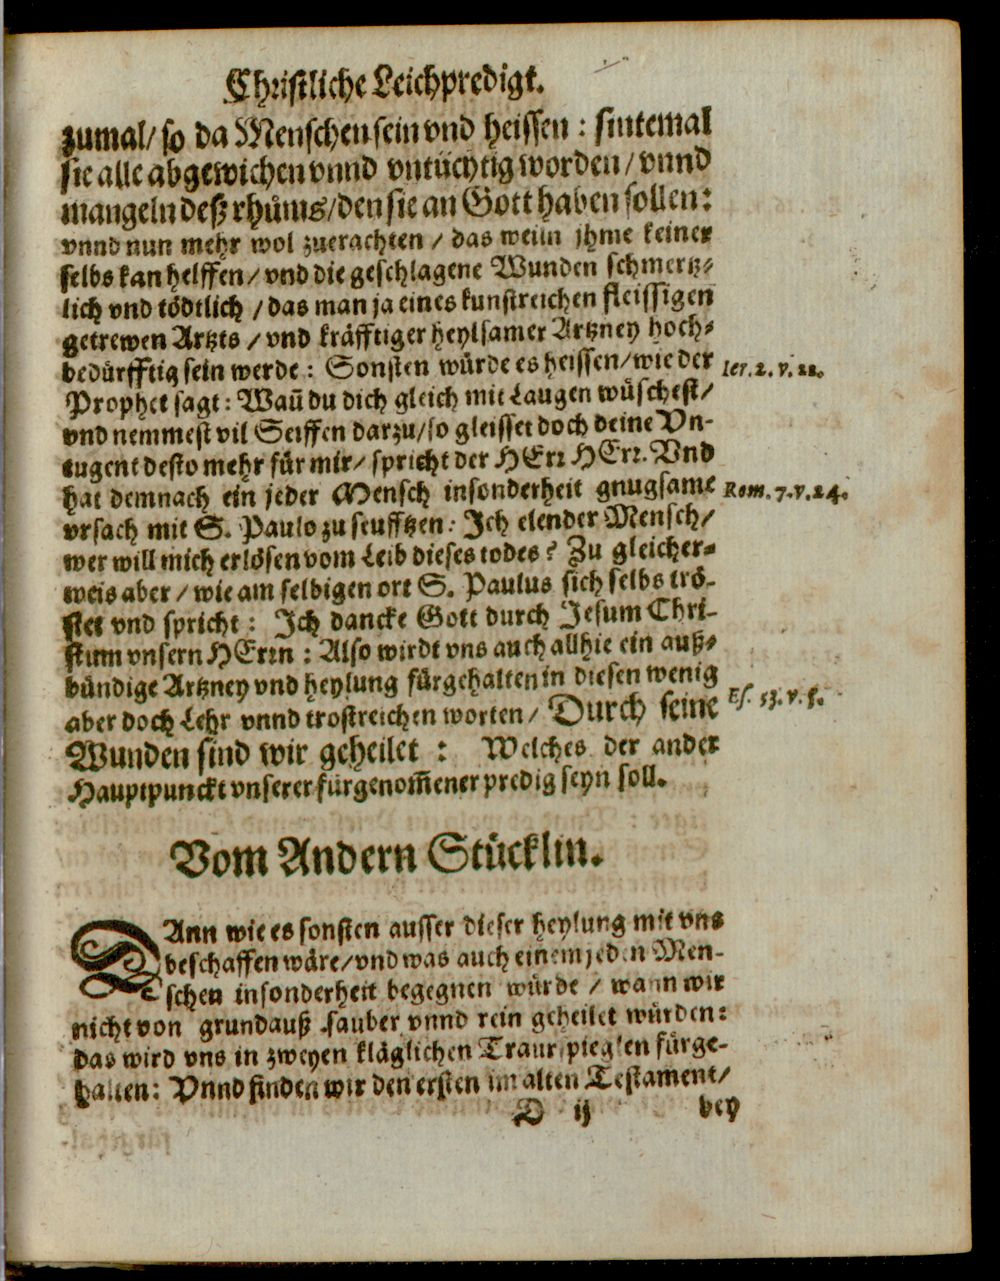 Christliche Leichpredigt.
zumal/ so da Menschen sein vnd heissen : sintemal
sie alle abgewichen vnnd vntüchtig worden/ vnnd
mangeln deß rhůms/ den sie an Gott haben sollen:
vnnd nun mehr wol zuerachten / das weiln jhme keiner
selbs kan helffen/ vnd die geschlagene Wunden schmertz⸗
lich vnd tödtlich / das man ja eines kunstreichen fleissigen
getrewen Artzts / vnd kräfftiger heylsamer Artzney hoch⸗
bedürfftig sein werde : Sonsten würde es heissen/ wie der Ier. 2. v. 22.
Prophet sagt : Wañ du dich gleich mit Laugen wüschest/
vnd nemmest vil Seiffen darzu/ so gleisset doch deine Vn-
tugent desto mehr für mir/ spricht der HErr HErr. Vnd
hat demnach ein jeder Mensch insonderheit gnugsame Rom. 7. v. 24.
vrsach mit S. Paulo zu seufftzen : Ich elender Mensch/
wer will mich erlösen vom Leib dieses todes? Zu gleicher⸗
weis aber / wie am selbigen ort S. Paulus sich selbs trö-
stet vnd spricht : Ich dancke Gott durch Jesum Chri-
stum vnsern HErrn : Also wirdt vns auch allhie ein auß⸗
bündige Artzney vnd heylung fürgehalten in diesen wenig
aber doch Lehr vnnd trostreichen worten/ Durch seine Es. 53. v. 5.
Wunden sind wir geheilet : Welches der ander
Hauptpunckt vnserer fürgenom̃ener predig seyn soll.
Vom Andern Stücklin.
DAnn wie es sonsten ausser dieser heylung mit vns
beschaffen wäre/ vnd was auch einem jeden Men-
schen insonderheit begegnen würde / wann wir
nicht von grundauß sauber vnnd rein geheilet würden:
das wird vns in zweyen kläglichen Traurspieglen fürge-
halten: Vnnd finden wir den ersten im alten Testament/
D ij bey